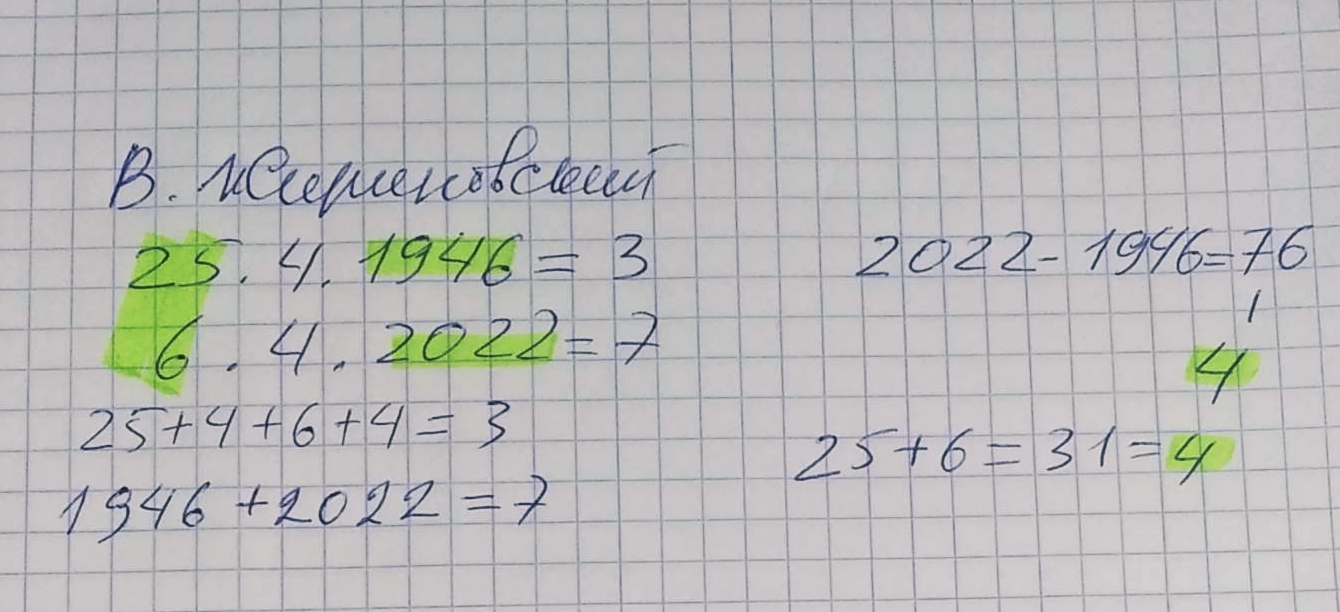 В. Жириновский
25. 4. 1946 = 3
6. 4. 2022 = 7
25+4+6+4= 3
1946 +2022 = 7
2022- 1946=76
4
25+6=31=4